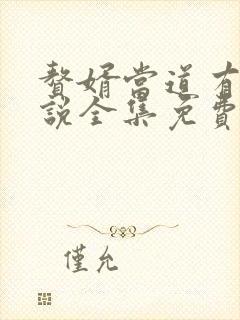 贅婿當道有
説全集免費
僅允